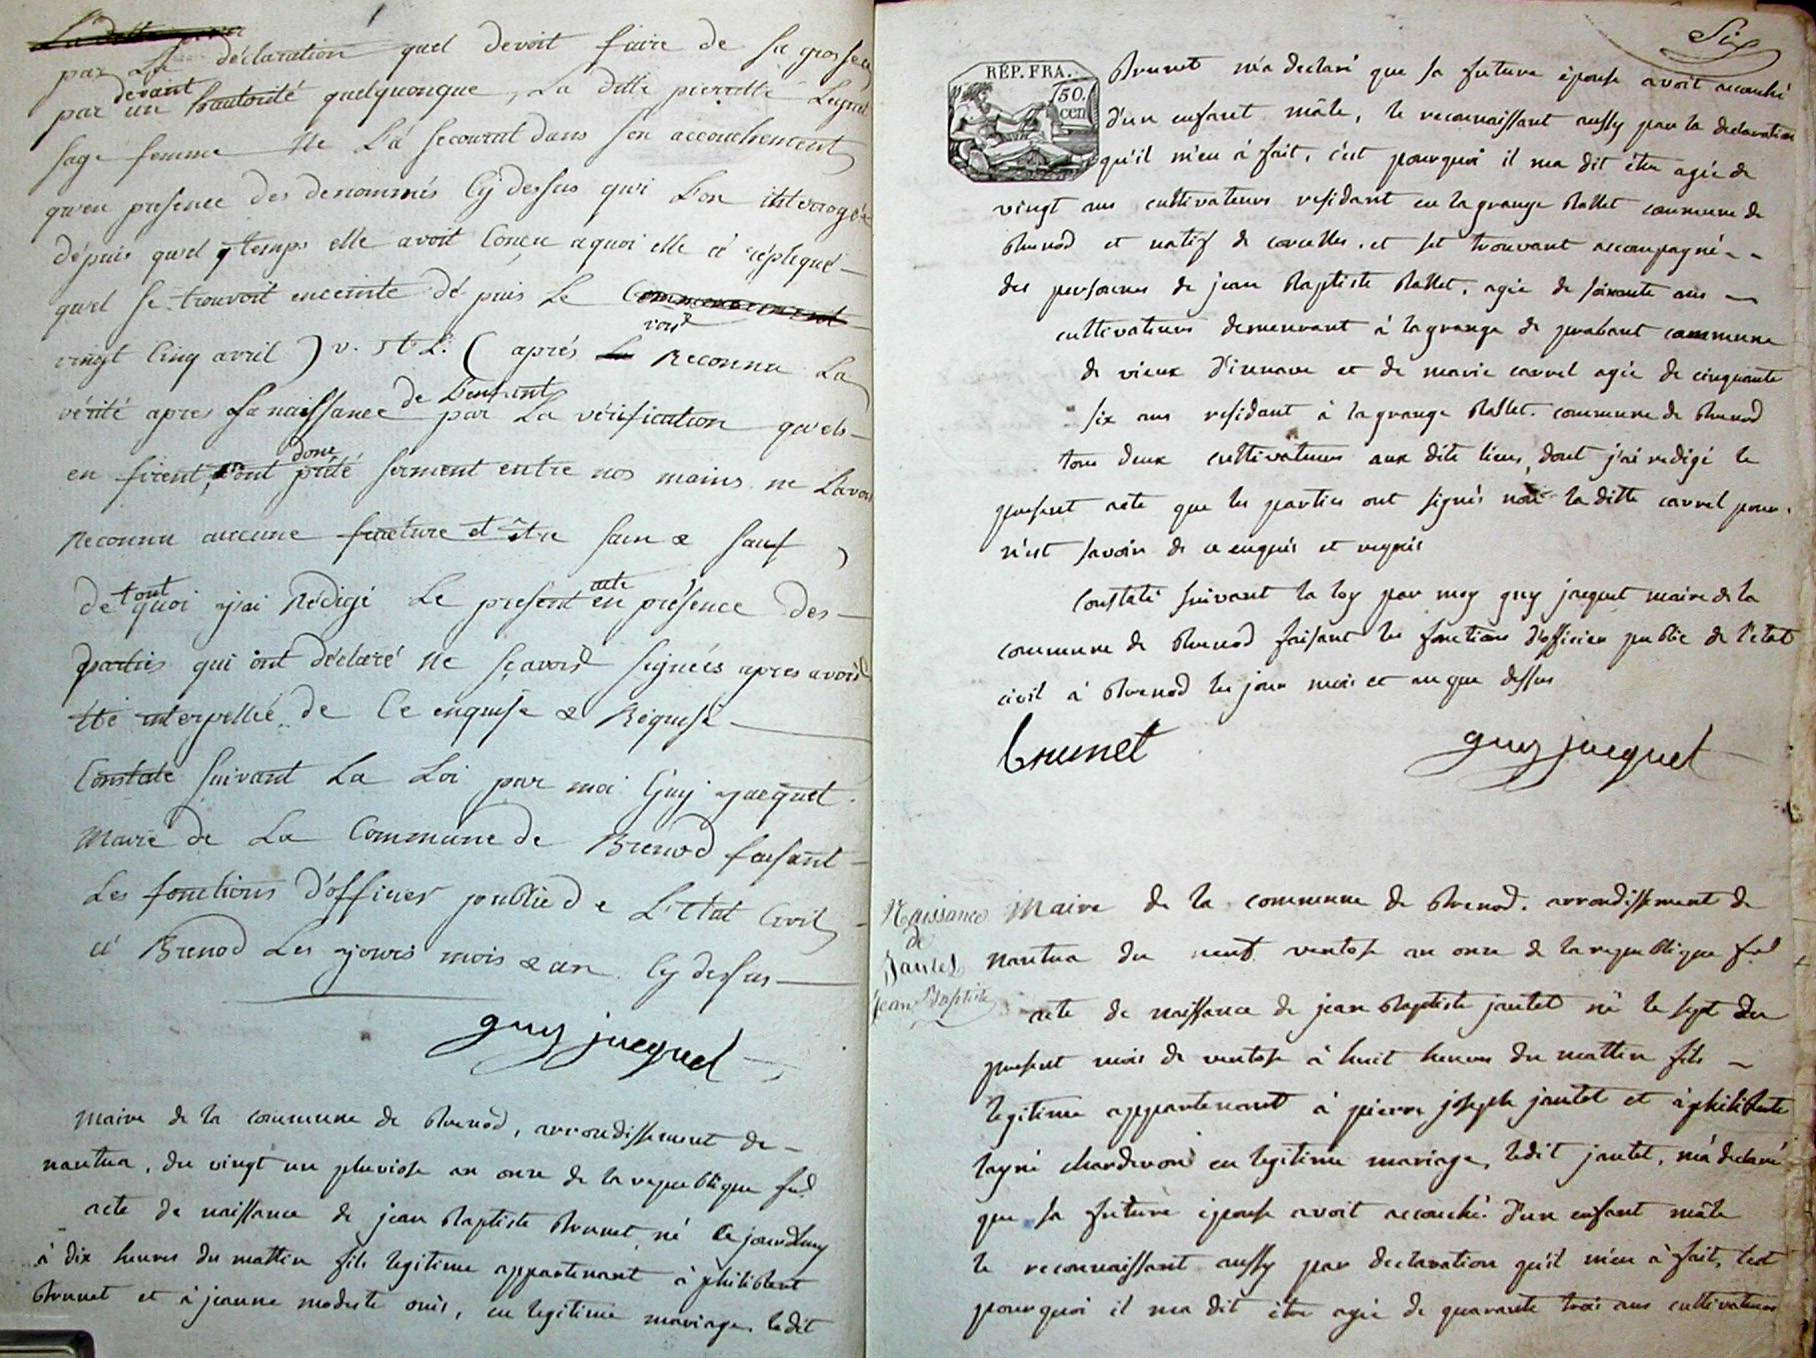 par La déclaration quel devoit faire de sa grossesse
devant
par un hautorité quelquonque, La ditte pierrette
sage femme Ne La secourut dans son accouchement
qu'en presence des denommés Cy dessus qui L'on interrogée
dépuis quel temps elle avoit Conçu aquoi elle à répliqué
quel se trouvoit enceinte dépuis Le Commencement
vingt Cinq avril ) v. st. L. ( aprés Reconnu La
de L'enfant
vérité apres La naissance par La vérification qu'els
donc
en firent, ont prété serment entre nos mains ne L'avoir
Reconnu aucune fracture et être sain & sauf
tout acte
de quoi j'ai Rédigé Le present en présence des
parties qui ont déclaré Ne sçavoir signées apres avoir
été interpellée de Ce enquise & Requise
Constaté suivant La Loi par moi Guy jacquet
Maire de La Commune de Brenod faisant
Les fonctions d'officier public de L'Etat Civil
à Brenod Les jours mois & an Cy dessus
guy jacquet
Maire de la commune de Brenod, arrondissement de
nantua, du vingt un pluviose an onze de la republique
acte de naissance de jean Baptiste Brunet né Ce jourdhuy
à dix heures du mattin fils legitime appartenant à philibert
Brunet et à jeanne modeste en legitime mariage, ledit
Six
RÉP. FRA.
50.
cen
Brunet m'a declaré que sa future épouse avoit accouché
d'un enfant mâle, le reconnaissant aussy par la declaration
qu'il m'en à fait, c'est pourquoi il ma dit être agée de
vingt ans cultivateurs residant en la grange Ballet commune de
Brenod et natif de corcelles, et set trouvant accompagné
des personnes de jean Baptiste Ballet, agée de soixante ans
cultivateurs demeurant à la grange de prabant commune
de vieux d'izenave et de marie carrel agée de cinquante
six ans residant à la grange Ballet commune de Brenod
tous deux cultivateurs aux dits lieux, dont j'ai redigé le
present acte que les parties ont signés non la ditte carrel pour
n'est savoir de ce enquis et requis
Constaté suivant la loy par moy guy jacquet maire de la
commune de Brenod faisant les fonctions d'officier public de l'état
civil à Brenod les jour mois et an que dessus
Brunet guy jacquet
Naissance
de
Jantet
Jean Baptiste
Maire de la commune de Brenod, arrondissement de
nantua du neuf ventose an onze de la republique
acte de naissance de jean Baptiste jantet né le sept du
present mois de ventose à huit heures du mattin fils
legitime appartenant à pierre joseph jantet et à philiberte
charderon en legitime mariage, ledit jantet, m'a declaré
que sa future épouse avoit accouché d'un enfant mâle
le reconnaissant aussy par declaration qu'il m'en à fait, c'est
pourquoi il ma dit être agée de quarante trois ans cultivateurs